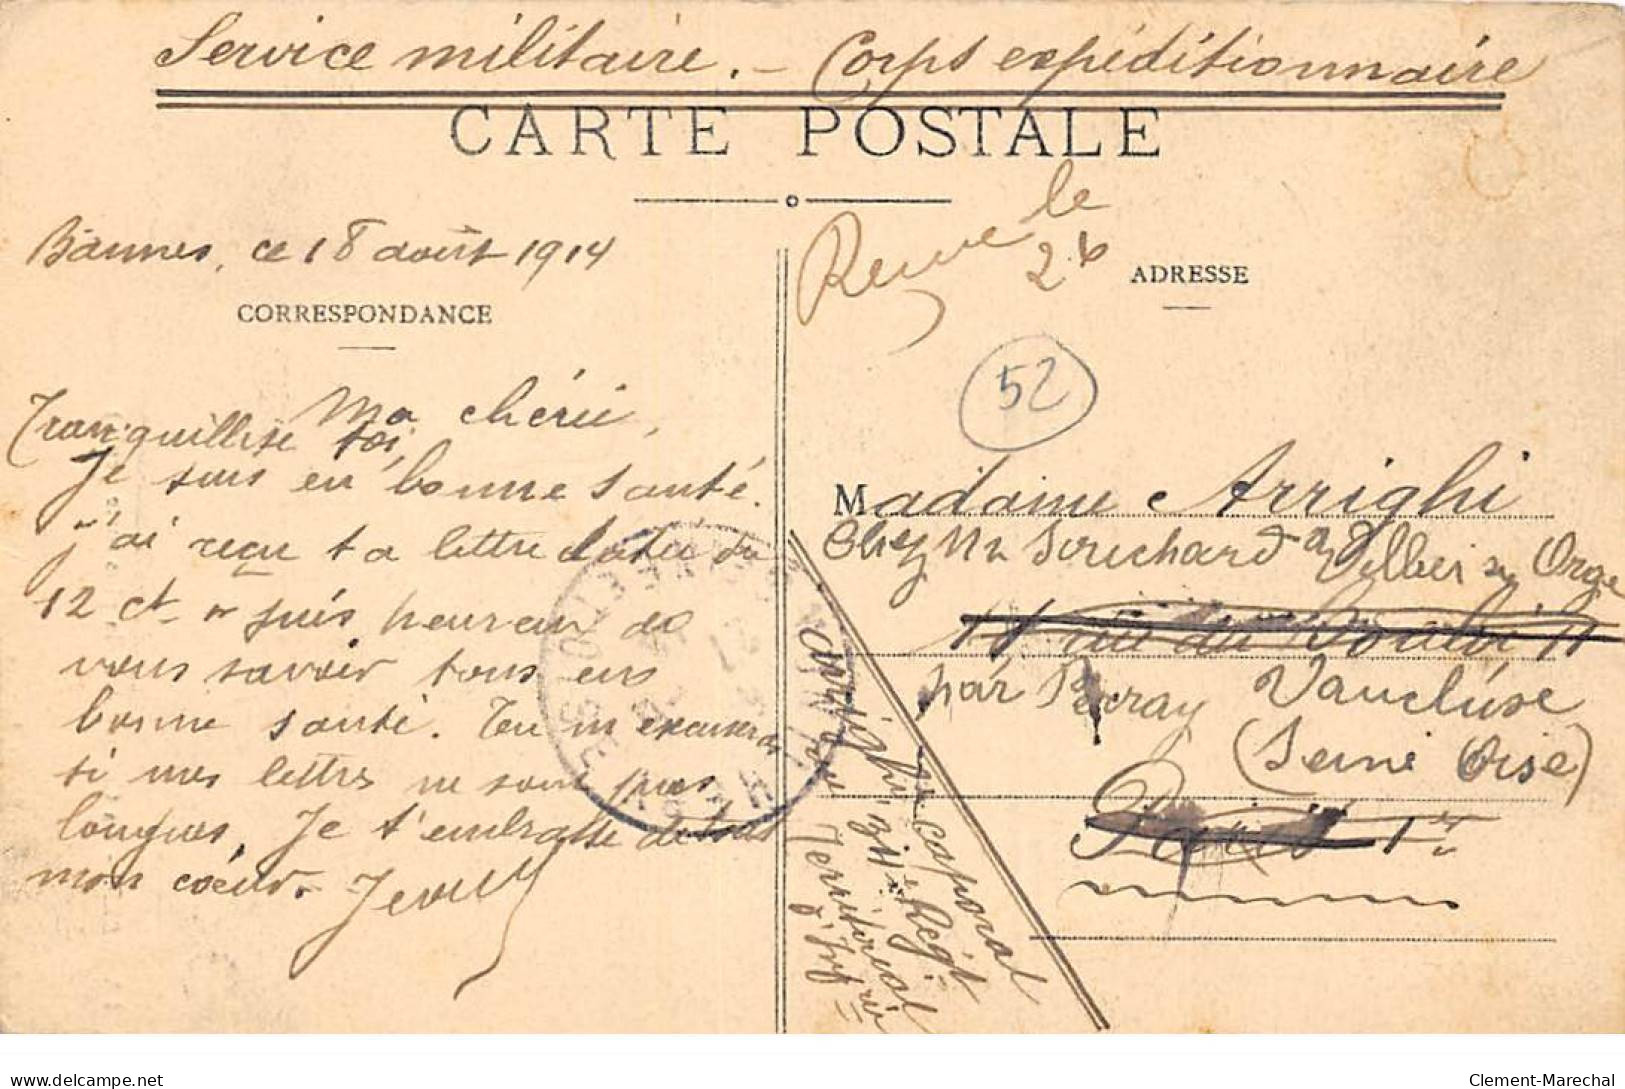 Service militaire. — Corps expéditionnaire
CARTE POSTALE
Bannes, ce 18 août 1914
CORRESPONDANCE
Ma chérie,
Tranquillise toi,
Je suis en bonne santé.
j'ai reçu ta lettre datée du
12 ct. je suis heureux de
vous savoir tous en
bonne santé. Tu m'excuseras
si mes lettres ne sont pas
longues. Je t'embrasse de tout
mon cœur.
le
26
ADRESSE
52
Madame Arrighi
Chez Mr Souchard à Villiers sur Orge
11 rue du 11
par Perray Vaucluse
(Seine Oise)
Paris 1er
Arrighi, caporal
211e Regt
Territorial
d'Infrie
delcampe.net
Clement-Marechal